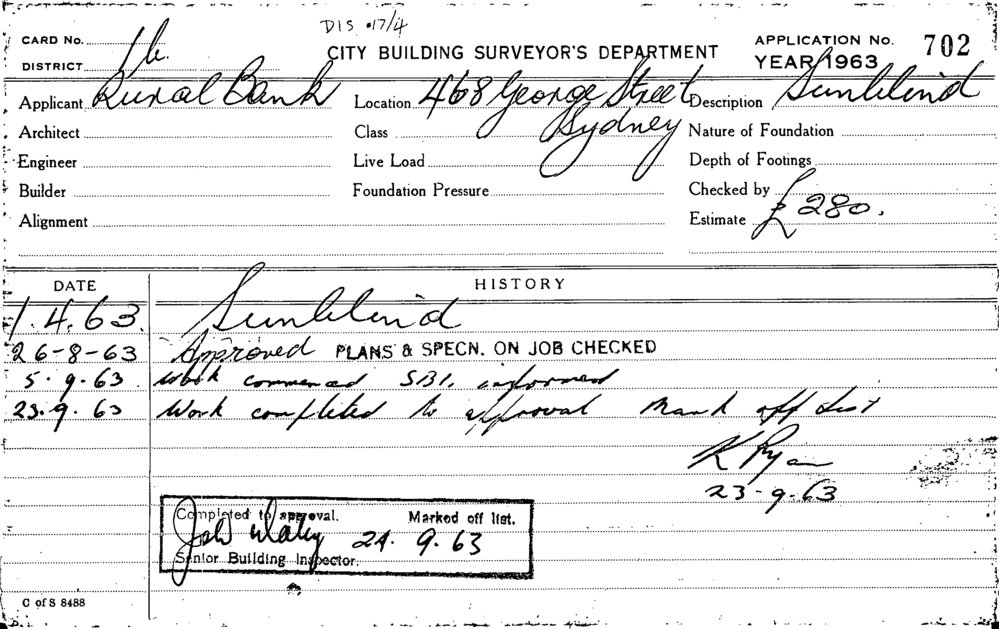 DIS. 17/4
CARD No. 16.
DISTRICT
CITY BUILDING SURVEYOR'S DEPARTMENT
APPLICATION No. 702
YEAR 1963
Applicant Rural Bank
Location 468 George Street
Sydney
Description Sunblind
Architect
Class
Nature of Foundation
Engineer
Live Load
Depth of Footings
Builder
Foundation Pressure
Checked by
Alignment
Estimate £280.
DATE HISTORY
1.4.63. Sunblind
26-8-63 Approved PLANS & SPECN. ON JOB CHECKED
5.9.63 Work commenced SBI. informed
23.9.63 Work completed to approval Mark off List
K Ryan
23-9-63
Completed to approval. Marked off list.
24. 9. 63
Senior Building Inspector.
C of S 8488